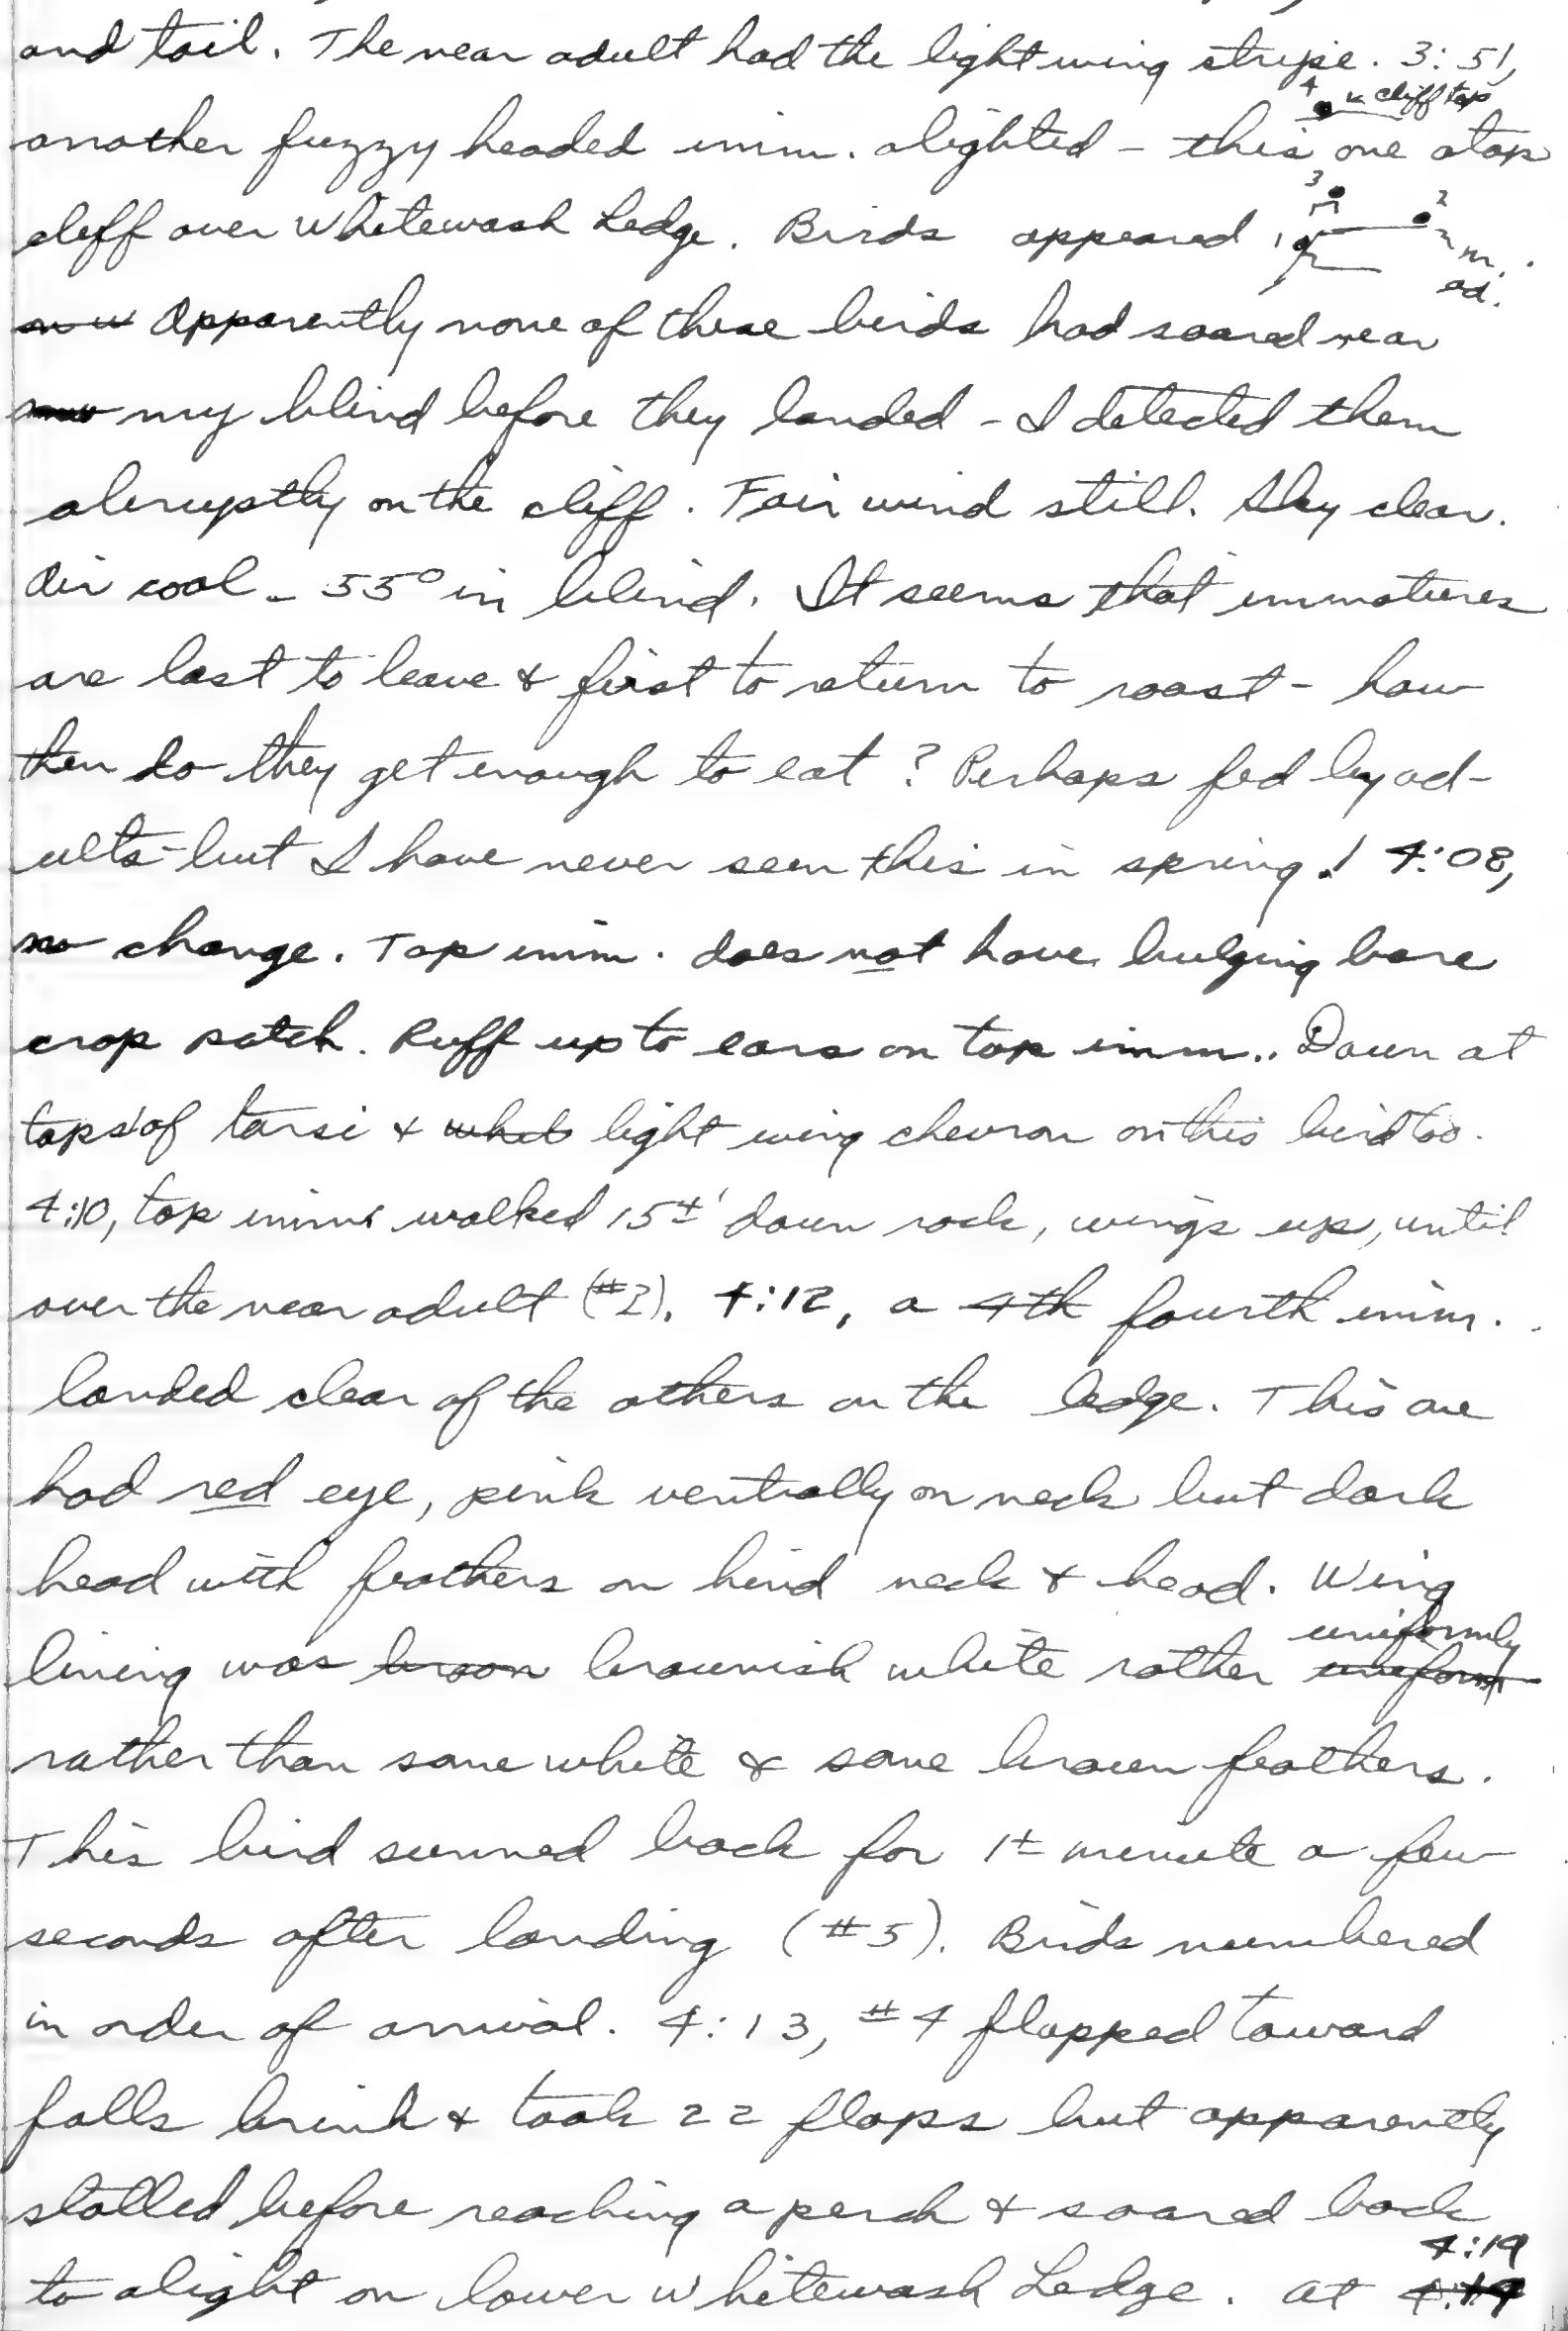 and tail. The near adult had the light wing stripe. 3:51,
another fuzzy headed imm. alighted - this one atop
4 cliff top
cliff over Whitewash Ledge. Birds appeared
3
1
2
ad.
Apparently none of these birds had soared near
my blind before they landed - I detected them
abruptly on the cliff. Fair wind still. Sky clear.
Air cool - 55° in blind. It seems that immatures
are last to leave & first to return to roost - how
then do they get enough to eat? Perhaps fed by ad-
ults - but I have never seen this in spring! 4:08,
no change. Top imm. does not have bulging bare
crop patch. Ruff up to ears on top imm.. Down at
tops of tarsi & light wing chevron on this bird too.
4:10, top imm. walked 15±' down rock, wings up, until
over the near adult (#2). 4:12, a 4th fourth imm.
landed clear of the others on the ledge. This one
had red eye, pink ventrally on neck but dark
head with feathers on hind neck & head. Wing
lining was brownish white rather uniformly
rather than some white & some brown feathers.
This bird sunned back for 1± minute a few
seconds after landing (#5). Birds numbered
in order of arrival. 4:13, #4 flapped toward
falls brink & took 22 flaps but apparently
stalled before reaching a perch & soared back
to alight on lower Whitewash Ledge. At 4:19